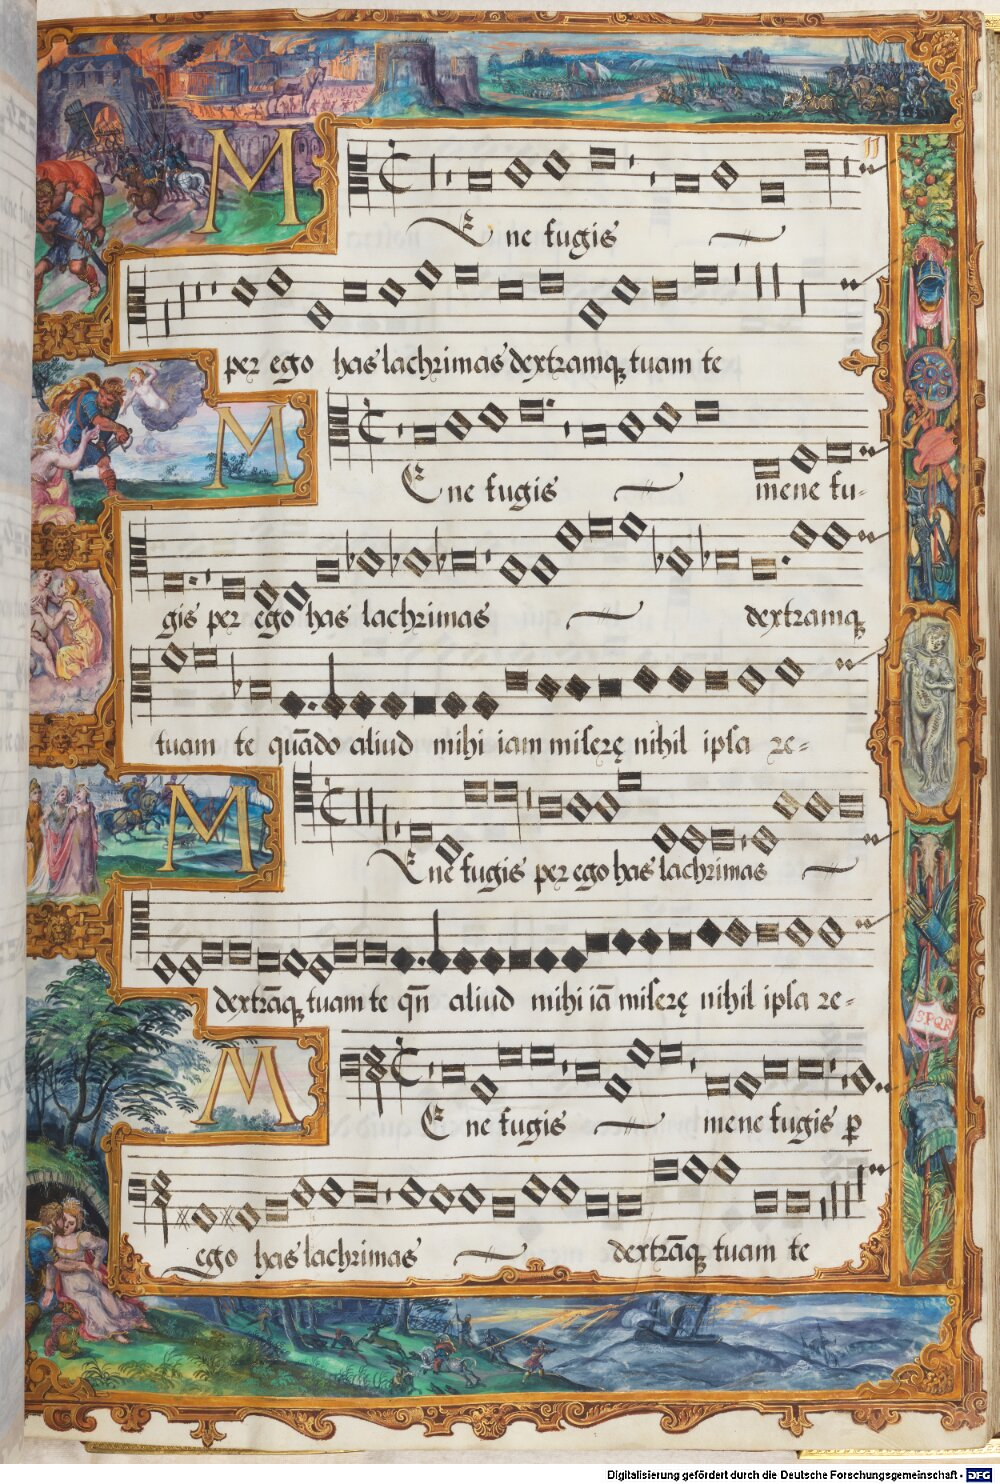 M
E ne fugis
per ego has lachrimas dextramq tuam te
M
E ne fugis mene fu-
gis per ego has lachrimas dextramq
tuam te quādo aliud mihi iam miserę nihil ipsa re=
M
E ne fugis per ego has lachrimas
dextrāq tuam te qn̄ aliud mihi iā miserę nihil ipsa re=
SPQR
M
E ne fugis mene fugis p
ego has lachrimas dextrāq tuam te
Digitalisierung gefördert durch die Deutsche Forschungsgemeinschaft - DFG